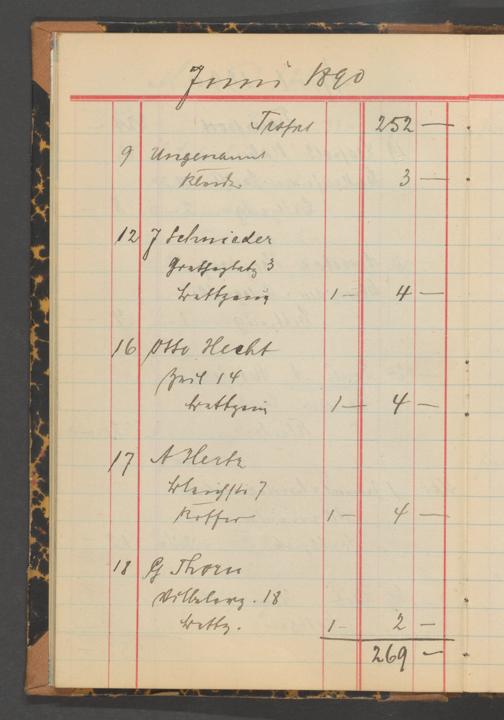 Juni 1890
Trsprt 252 —
9 Ungenannt
Kleider 3 —
12 J Schnieder
Goetheplatz 3
Bettzeug 1 — 4 —
16 Otto Hecht
Zeil 14
Bettzeug 1 — 4 —
17 A Hertz
Bleichstr 7
Koffer 1 — 4 —
18 G Thorn
Vilbelerg. 18
Bettz. 1 - 2 —
269 —